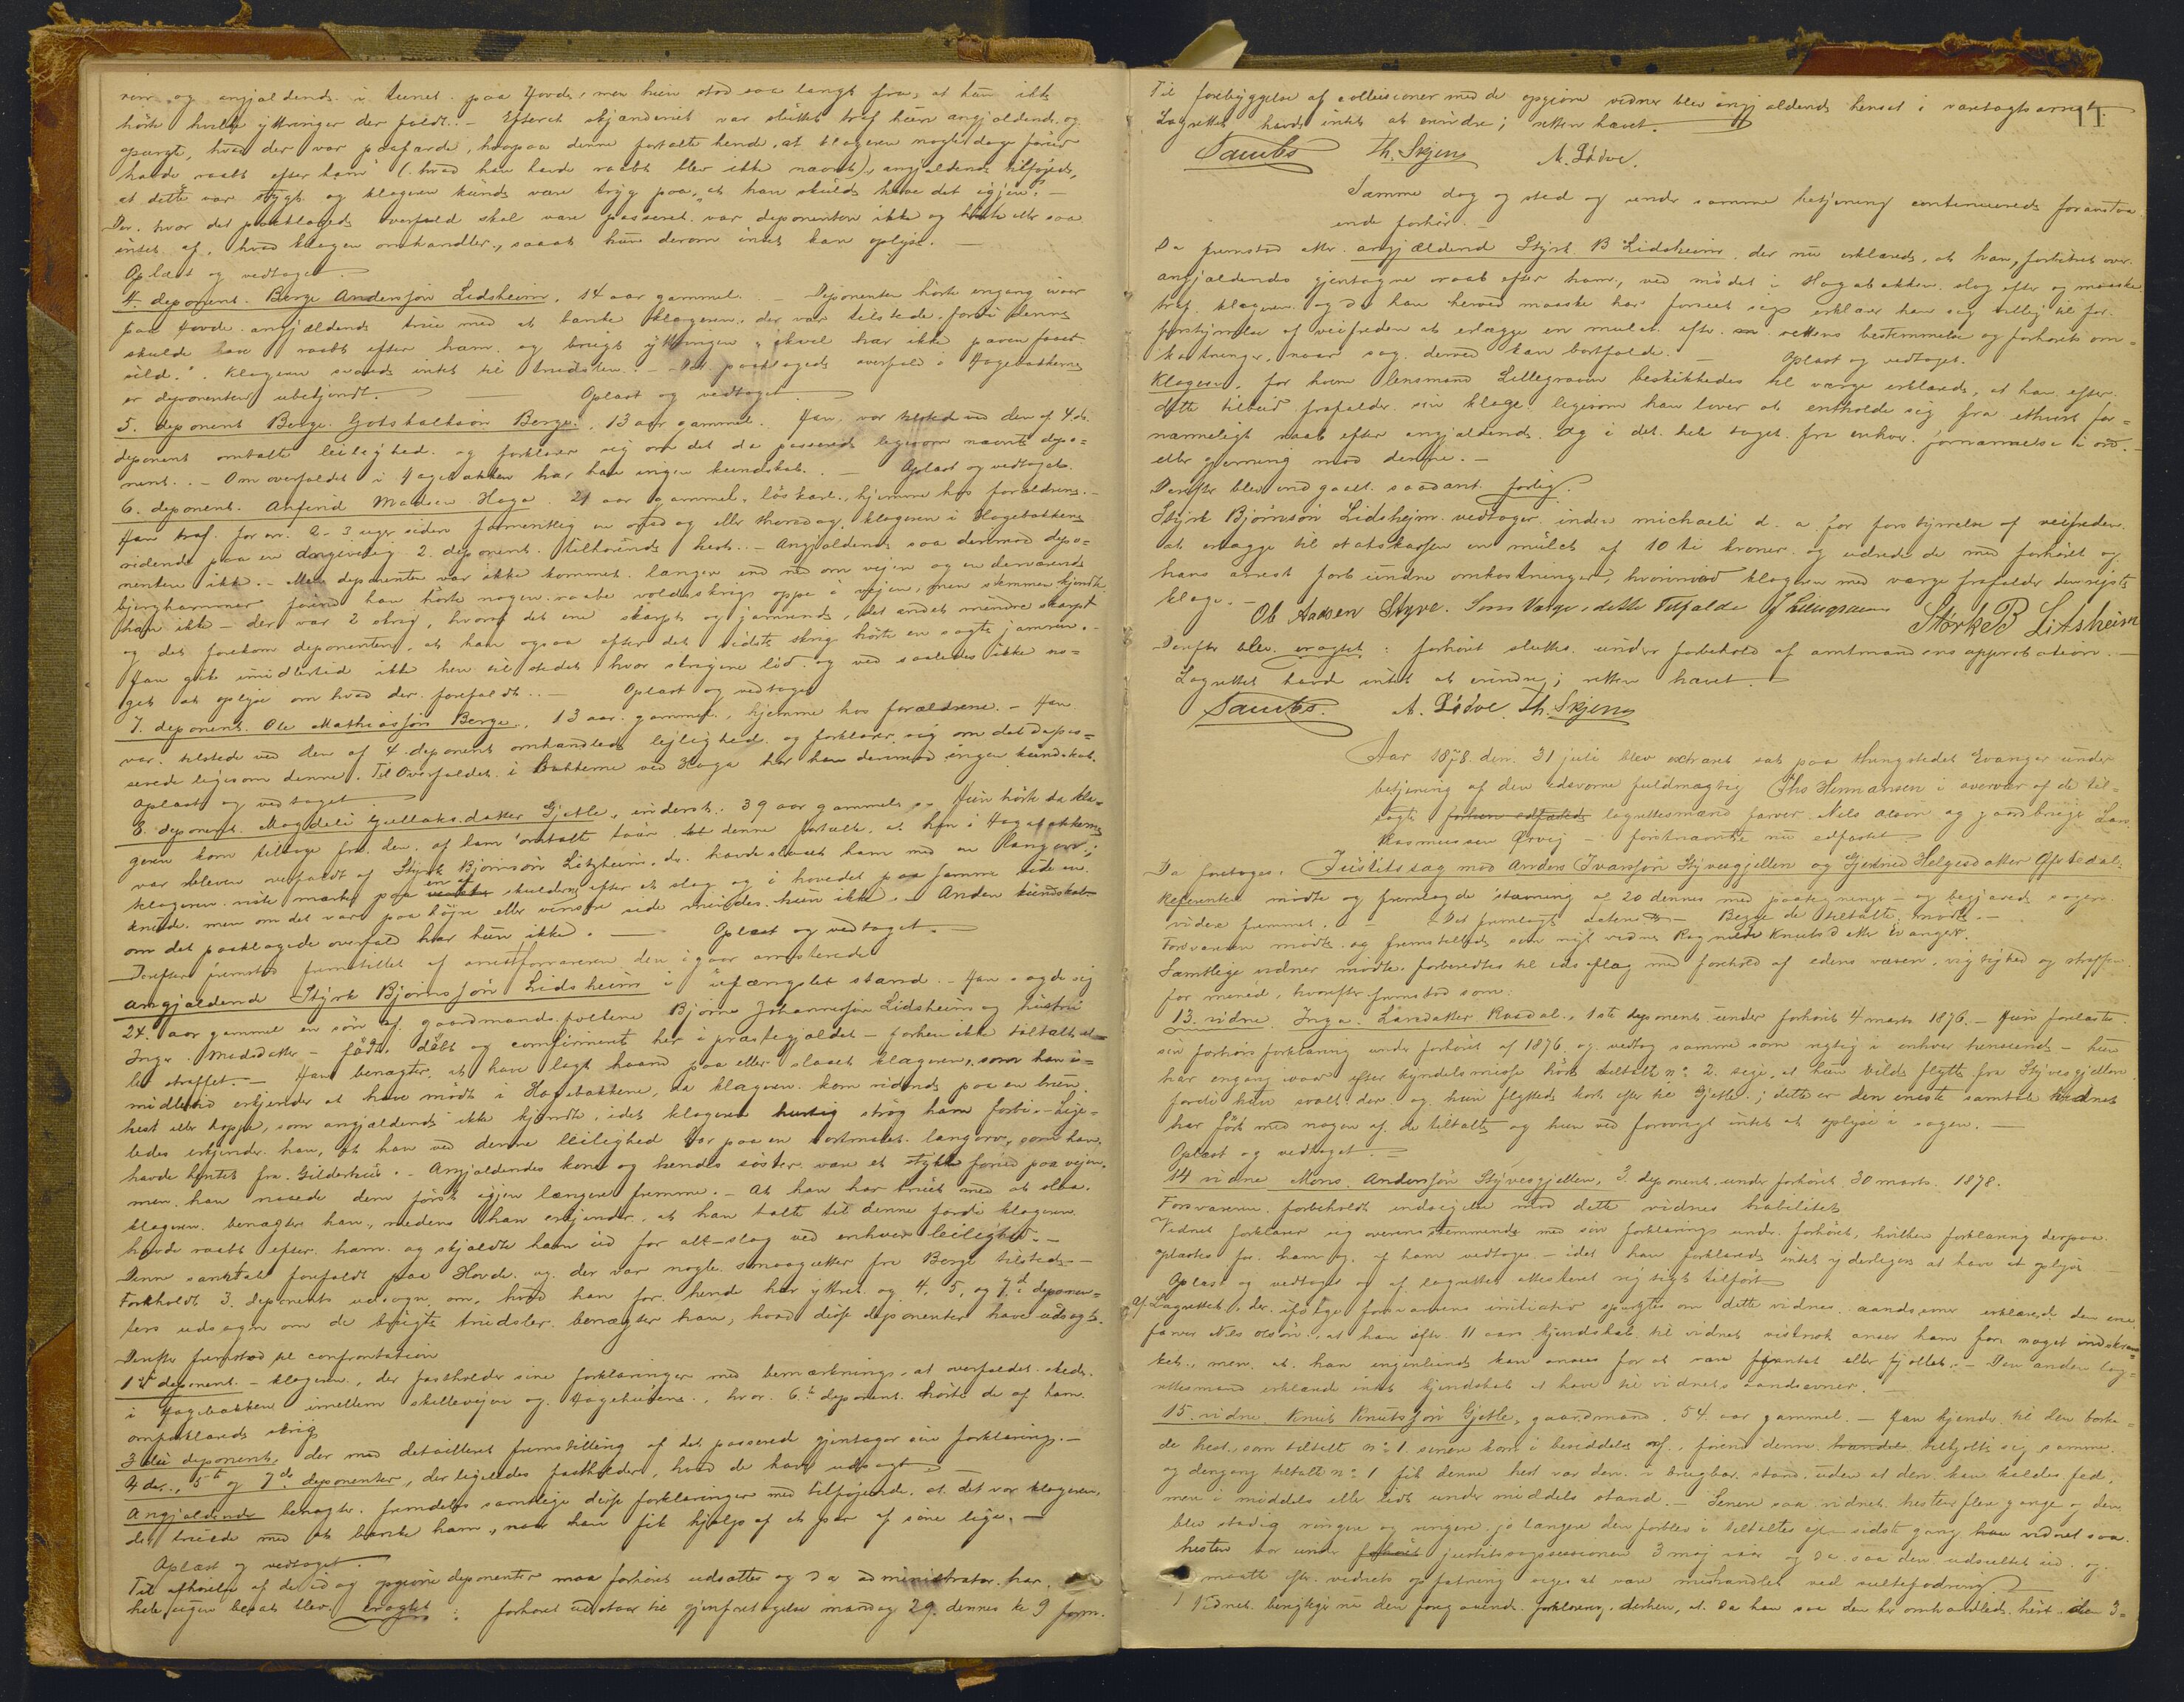 renr og angjældende i tunet paa Hovde, men hun stod saa langt fra, at hun ikke
hørte hvilke yttringer der faldt. – Efterat skjænderiet var sluttet traf hun angjældende og
spurgte, hvad der var paafærde, hvorpaa denne fortalte hende, at klageren nogle dage forud
havde raabt efter ham (hvad han havde raabt blev ikke nævnt), angjældende tilføiede,
at dette var stygt og klageren kunde være tryg paa, "at han skulde have det igjen". –
Der, hvor det paaklagede overfald skal være passeret var deponenten ikke og hørte eller saa
intet af, hvad klagen omhandler, saaat hun derom intet kan oplyse. –
Oplæst og vedtaget.
4. deponent. Berge Andersøn Lidsheim, 14 aar gammel. – Deponenten hørte engang ivaar
paa Hovde angjældende true med at banke klageren, der var tilstede, fordi denne
skulde have raabt efter ham og brugt yttringen "skvel har ikke paven faaet
sild". Klageren svarede intet til truslen. – Det paaklagede overfald i Hagebakkerne
er deponenten ubekjendt. – Oplæst og vedtaget.
5. deponent Berge Gotskalksøn Berge, 13 aar gammel. Han var tilstede ved den af 4de
deponent omtalte leilighed og forklarer sig om det da passerede ligesom nævnte depo=
nent. – Om overfaldet i Hagebakken har han ingen kundskab. – Oplæst og vedtaget.
6. deponent. Anfind Madsen Haga 21 aar gammel, løskarl, hjemme hos forældrene. –
Han traf for ca. 2-3 uger siden formentlig en onsdag eller thorsdag klageren i Hagebakkene
ridende paa en 2. deponent tilhørende hest. – Angjældende saa derimod depo=
nenten ikke. – Men deponenten var ikke kommet længer end ned om vejen og en derværende
bjerghammer førend han hørte nogen raabe voldsskrig oppe i vejen, men stemmen kjendte
han ikke – der var 2 skrig, hvoraf det ene skarpt og jamrende, det andet mindre skarpt
og det forekom deponenten, at han ogsaa efter det sidste skrig hørte en sagte jamren. –
Han gik imidlertid ikke hen til stedet hvor skrigene lød og ved saaledes ikke no=
get at oplyse om hvad der forefaldt. – Oplæst og vedtaget
7. deponent. Ole Mathiasøn Berge, 13 aar gammel, hjemme hos forældrene. – Han
var tilstede ved den af 4. deponent omhandlede lejlighed og forklarer sig om det da pas=
serede ligesom denne. Til Overfaldet i Bakkerne ved Haga har han derimod ingen kundskab.
Oplæst og vedtaget
8. deponent. Magdeli Gullaksdatter Gjetle, inderst, 39 aar gammel. – Hun hørte da kla=
geren kom tilbage fra den af ham omtalte tour denne fortælle, at han i Hagebakkerne
var bleven overfaldt af Styrk Bjørnsøn Litsheim, der havde slaaet ham med en langorv;
klageren viste mærke paa en af skuldrene efter et slag og i hovedet paa samme side en
knude, men om det var paa høyre eller venstre side mindes hun ikke. – Anden kundskab
om det paaklagede overfald har hun ikke. – Oplæst og vedtaget. –
Derefter fremstod fremstillet af arrestforvareren den igaar arresterede
angjældende Styrk Bjørnsøn Lidsheim i ufængslet stand. – Han sagde sig
24 aar gammel en søn af gaardmandsfolkene Bjørne Johannesøn Lidsheim og hustru
Inga Madsdatter – født, døbt og confirmeret her i præstegjældet – forhen ikke tiltalt el=
ler straffet. – Han benægter, at have lagt haand paa eller slaaet klageren, som han i=
midlertid erkjender at have mødt i Hagebakkene, da klageren kom ridende paa en brun
hest eller hoppe, som angjældende ikke kjendte, idet klageren hurtig strøg ham forbi. – Lige=
ledes erkjender han, at han ved denne leilighed bar paa en langorv, som han
havde hentet fra Gilderhus. – Angjældendes kone og hendes søster vare et stykke forud paa vejen,
men han naaede dem først igjen længere fremme. – At han har truet med at slaa
klageren benægter han, medens han erkjender, at han talte til denne fordi klageren
havde raabt efter ham og skjældte ham ud for alt-slag ved enhver leilighed. –
Denne samtale forefaldt paa Hovde og der var nogle smaagutter fra Berge tilstede. –
Forholdt 3. deponents udsagn om, hvad han for hende har yttret og 4, 5, og 7de deponen=
ters udsagn om de brugte trudsler benægter han, hvad disse deponenter have udsagt.
Derefter fremstod til confrontation
1ste deponent – klageren, der fastholder sine forklaringer med bemærkning, at overfaldet skede
i Hagebakken imellem skillevejen og Hagehusene, hvor 6te deponent hørte de af ham
omforklarede skrig
3die deponent, der med detailleret fremstilling af det passerede gjentager sin forklaring. –
4de, 5te og 7de deponenter, der ligeledes fastholder, hvad de have udsagt
Angjældende benægter fremdeles samtlige disse forklaringer med tilføiende, at det var klageren,
der truede med at banke ham, naar han fik hjælp af et par af sine lige. –
Oplæst og vedtaget.
Til afhørelse af de idag opgivne deponenter maa forhøret udsættes og da administrator har
hele ugen besat blev eragtet: forhøret udstaar til gjenforetagelse mandag 29. dennes kl 9 form.
11
Til forebyggelse af collusioner med de opgivne vidner blev angjældende hensat i varetægtsarrest.
Lagrettet havde intet at erindre; retten hævet.
Sambs Th. Skjens N. Lødve.
Samme dag og sted og under samme betjening continueredes foranstaa=
ende forhør. –
Da fremstod atter angjældende Styrk B Lidsheim, der nu erklærede, at han, forbitret over
angjældendes gjentagne raab efter ham, ved mødet i Hagabakken slog efter og maaske
traf klageren og da han herved maaske har forseet sig erklærer han sig villig til for
forstyrrelse af veifreden at erlægge en mulct efter rettens bestemmelse og forhørets om=
kostninger, naar sag derved kan bortfalde. – Oplæst og vedtaget.
Klageren, for hvem lensmand Lillegraven beskikkedes til værge erklærede, at han efter
dette tilbud frafalder sin klage ligesom han lover at entholde sig fra ethvert for=
nærmeligt raab efter angjældende og i det hele taget fra enhver fornærmelse i ord
eller gjerning mod denne. –
Derefter blev indgaaet saadant forlig
Styrk Bjørnsøn Lidshejm vedtager inden michaeli d. a. for forstyrrelse af veifreden
at erlægge til statskassen en mulct af 10 ti kroner og udrede de med forhøret og
hans arrest forbundne omkostninger, hvorimod klageren med værge frafalder den rejste
klage. –
Ole Aadsen Styve. Som Værge i dette Tilfælde J Lillegraven Størk B Litsheim
Derefter blev eragtet: forhøret sluttes under forbehold af amtmandens approbation. –
Lagrettet havde intet at erindre; retten hævet.
Sambs. N. Lødve Th. Skjens
Aar 1878 den 31 juli blev extraret sat paa thingstedet Evanger under
betjening af den edsvorne fuldmægtig Ths Hermansen i overvær af de til=
kaldte forhen edfæstede lagrettesmænd farver Nils Olsøn og gaardbruger Lars
Rasmussen Ørvig – førstnævnte nu edfæstet
Da foretoges: Justitssag mod Anders Ivarsøn Styvesgjellen og Gjertrud Helgesdatter
Referenten mødte og fremlagde stævning af 20 dennes med paategninger – og begjærede sagen
videre fremmet. – Det fremlagte – Begge de tiltalte mødte. –
Forsvareren mødte og fremstillede som nyt vidne Ragnilde Knutsdatter Evanger.
Samtlige vidner mødte, forberedtes til edsaflæg med foreholdelse af edens væsen, vigtighed og straffen
for mened, hvorefter fremstod som:
13. vidne. Inga Larsdatter Kvasdal, 1ste deponent under forhøret 4 marts 1876. – Hun forelæstes
sin forhørsforklaring under forhøret af 1876 og vedtog samme som rigtig i enhver henseende – hun
har engang ivaar efter kyndelsmisse hørt tiltalte no 2 sige, at hun vilde flytte fra Styvesgjellen
fordi hun svalt der og hun flyttede kort efter til Gjetle; dette er den eneste samtale vidnet
har ført med nogen af de tiltalte og hun ved forøvrigt intet at oplyse i sagen. –
Oplæst og vedtaget. –
14 vidne Mons Andersøn Styvesgjellen, 3. deponent under forhøret 30 marts 1878.
Forsvareren forbeholdt indsigelse mod dette vidnes habilitet
Vidnet forklarer sig overensstemmende med sin forklaring under forhøret, hvilken forklaring derpaa
oplæstes for ham og af ham vedtoges – idet han forklarede intet yderligere at have at oplyse –
Oplæst og vedtaget og af lagrettet attesteret rigtigt tilført
Af Lagrettet, der ifølge forsvarerens initiativ spurgtes om dette vidnes aandsevner erklærede den ene
farver Nils Olsøn, at han efter 11 aars kjendskab til vidnet vistnok anser ham for noget indskræn=
ket, men at han ingenlunde kan ansees for at være forantet eller fjollet. – Den anden lag=
rettesmand erklærede intet kjendskab at have til vidnets aandsevner. –
15. vidne Knut Knutsøn Gjetle, gaardmand, 54 aar gammel. – Han kjender til den borke=
de hest, som tiltalt no 1 senere kom i besiddelse af, førend denne tilbyttede sig samme
og dengang tiltalt no 1 fik denne hest var den i brugbar stand uden at den kan kaldes fed,
men i middels eller lidt under middels stand. – Senere saa vidnet hesten flere gange og den
blev stadig ringere og ringere jo længere den forblev i tiltaltes eje – sidste gang vidnet saa
hesten var under justitssagssessionen 3 maj iaar og da saa den udsultet ud og
maatte efter vidnets opfatning siges at være mishandlet ved sultefodring. –
Vidnet berigtiger nu den foregaaende forklaring derhen, at da han saa den her omhandlede hest den 3=